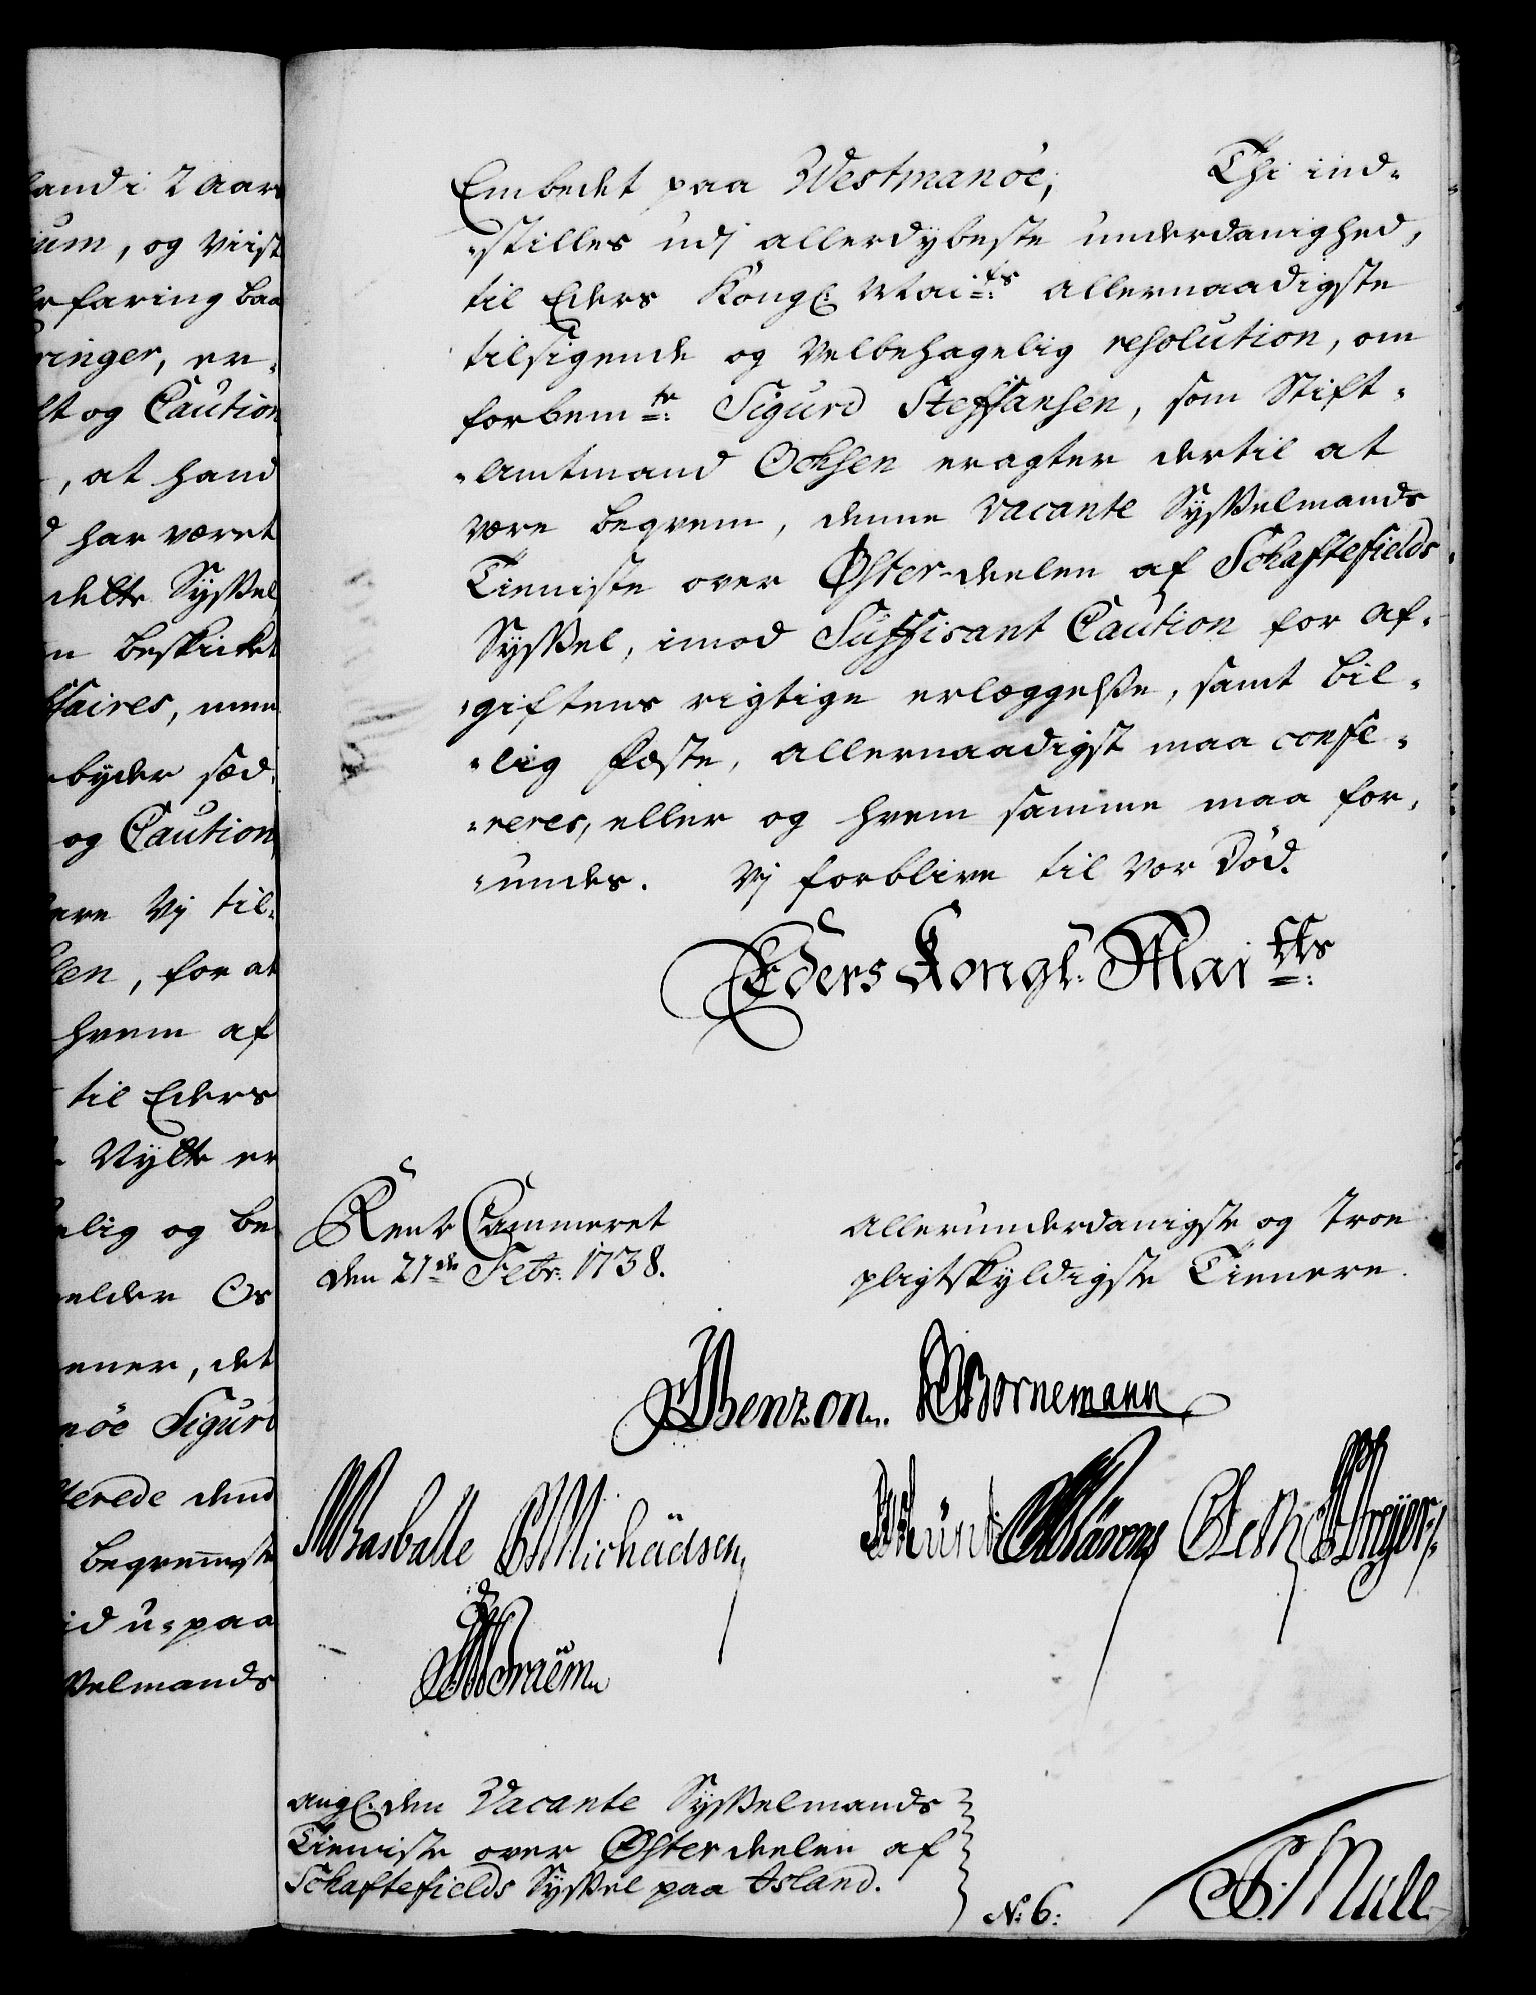 land i 2 aar
ium, og Viist
erfaring baa
ringer, er-
lt og Caution
, at hand
d har været
delte Syssel
n beskicket
ffaires, men
byder sæd
og Caution,
ere Vj til-
sen, for at
hvem af
til Eders
Nytte er
elig og be
elder Os
ener, det
nöe Sigurd
terede dend
beqvemmeste
id u-paa
selmands
Embedet paa Westmanöe, Thi ind-
-stilles udj allerdybeste underdanighed,
til Eders Kongl: Mai:ts allernaadigste
tilsigende og Velbehagelig resolution, om
forbem:te Sigurd Steffansen, som Stift-
-Amtmand Ochsen eragter dertil at
være beqvem, denne Vacante Sysselmands
Tieniste over Øster-deelen af Schaftefields
Syssel, imod Suffisant Caution for Af-
-giftens rigtige erlæggelse, samt bil-
-lig Fæste, allernaadigst maa confe-
-reres, eller og hvem samme maa for-
-undes. Vj forblive til vor Död.
Eders Kongl: Mai:tts
Rente Cammeret
den 21de Febr: 1738.
Allerunderdanigste og troe
pligtskyldigste Tienere.
Benzon. Bornemann
Basballe Michäelsen,
Dreÿer
Braëm
angl: den Vacante Sysselmands
Tieniste over Øster deelen af
Schaftefields Syssel paa Island.
N: 6:
Mull